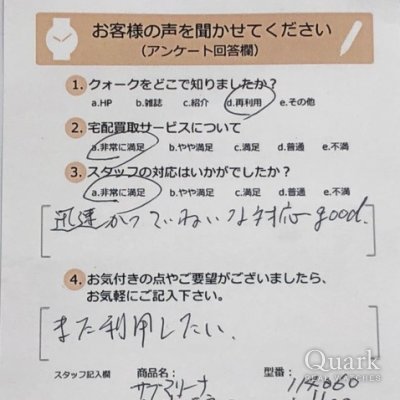 お客様の声を聞かせてください
(アンケート回答欄)
1. クォークをどこで知りましたか?
a.HP b.雑誌 c.紹介 d.再利用 e.その他
2. 宅配買取サービスについて
a.非常に満足 b.やや満足 c.満足 d.普通 e.不満
3. スタッフの対応はいかがでしたか?
a.非常に満足 b.やや満足 c.満足 d.普通 e.不満
迅速かつていねいな対応good.
4. お気付きの点やご要望がございましたら、
お気軽にご記入下さい。
また利用したい。
スタッフ記入欄 商品名: 型番:
サブマリーナ 114060
Quark